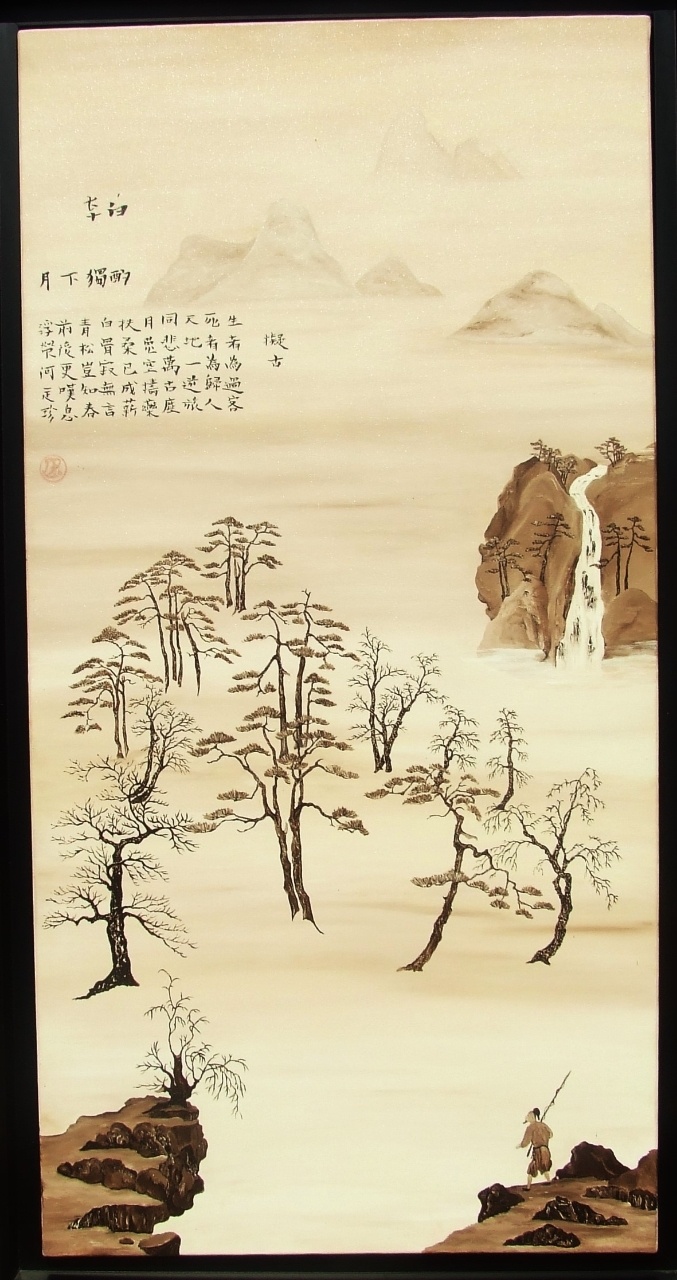 李白
月下獨酌
擬古
生者為過客
死者為歸人
天地一逆旅
同悲萬古塵
月兔空擣藥
扶桑已成薪
白骨寂無言
青松豈知春
前後更嘆息
浮榮何足珍